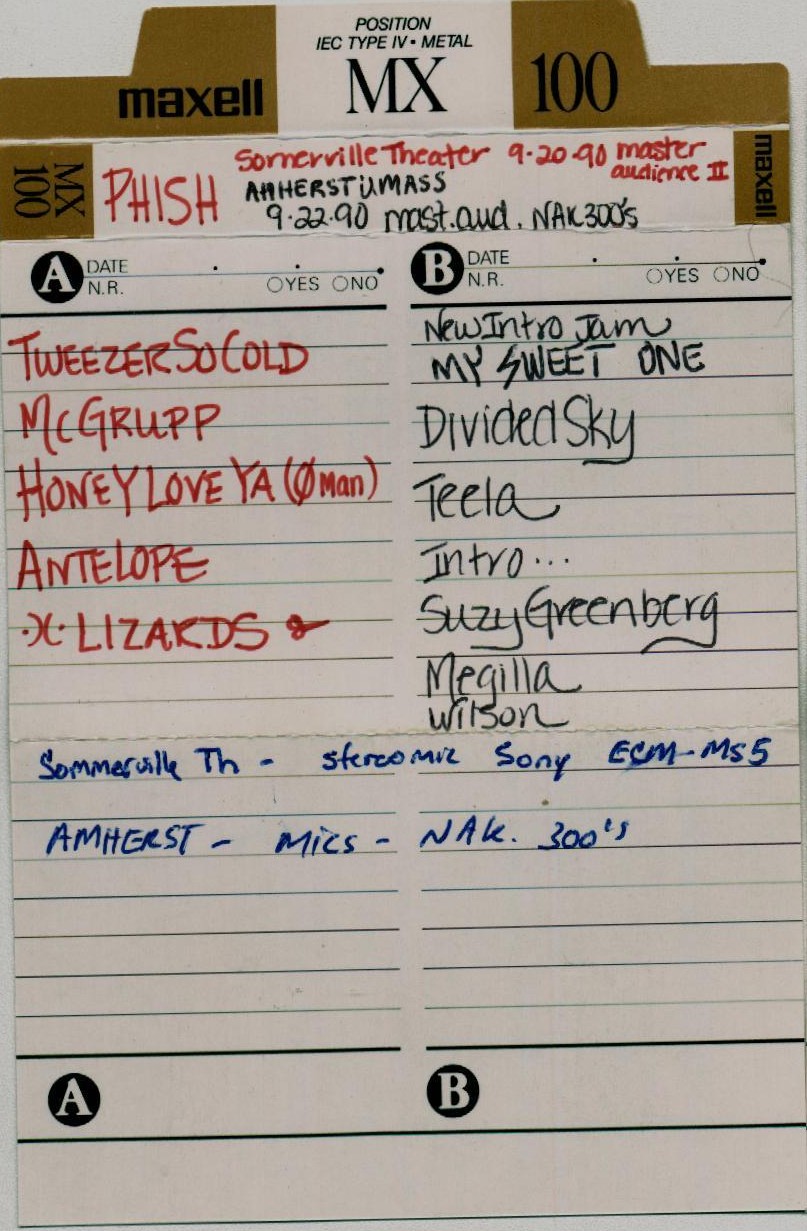 POSITION
IEC TYPE IV • METAL
maxell MX 100
MX 100
PHISH
Somerville Theater 9·20·90 master
audience II
AMHERST UMASS
9·22·90 mast.aud. NAK300's
maxell
A DATE
N.R. YES NO
TWEEZER SO COLD
McGRUPP
HONEY LOVE YA (Ø Man)
ANTELOPE
LIZARDS
B DATE
N.R. YES NO
New Intro Jam
MY SWEET ONE
Divided Sky
Teela
Intro...
Suzy Greenberg
Megilla
Wilson
Sommerville Th - stereo mic Sony ECM-MS5
AMHERST - Mics - NAK. 300's
A B